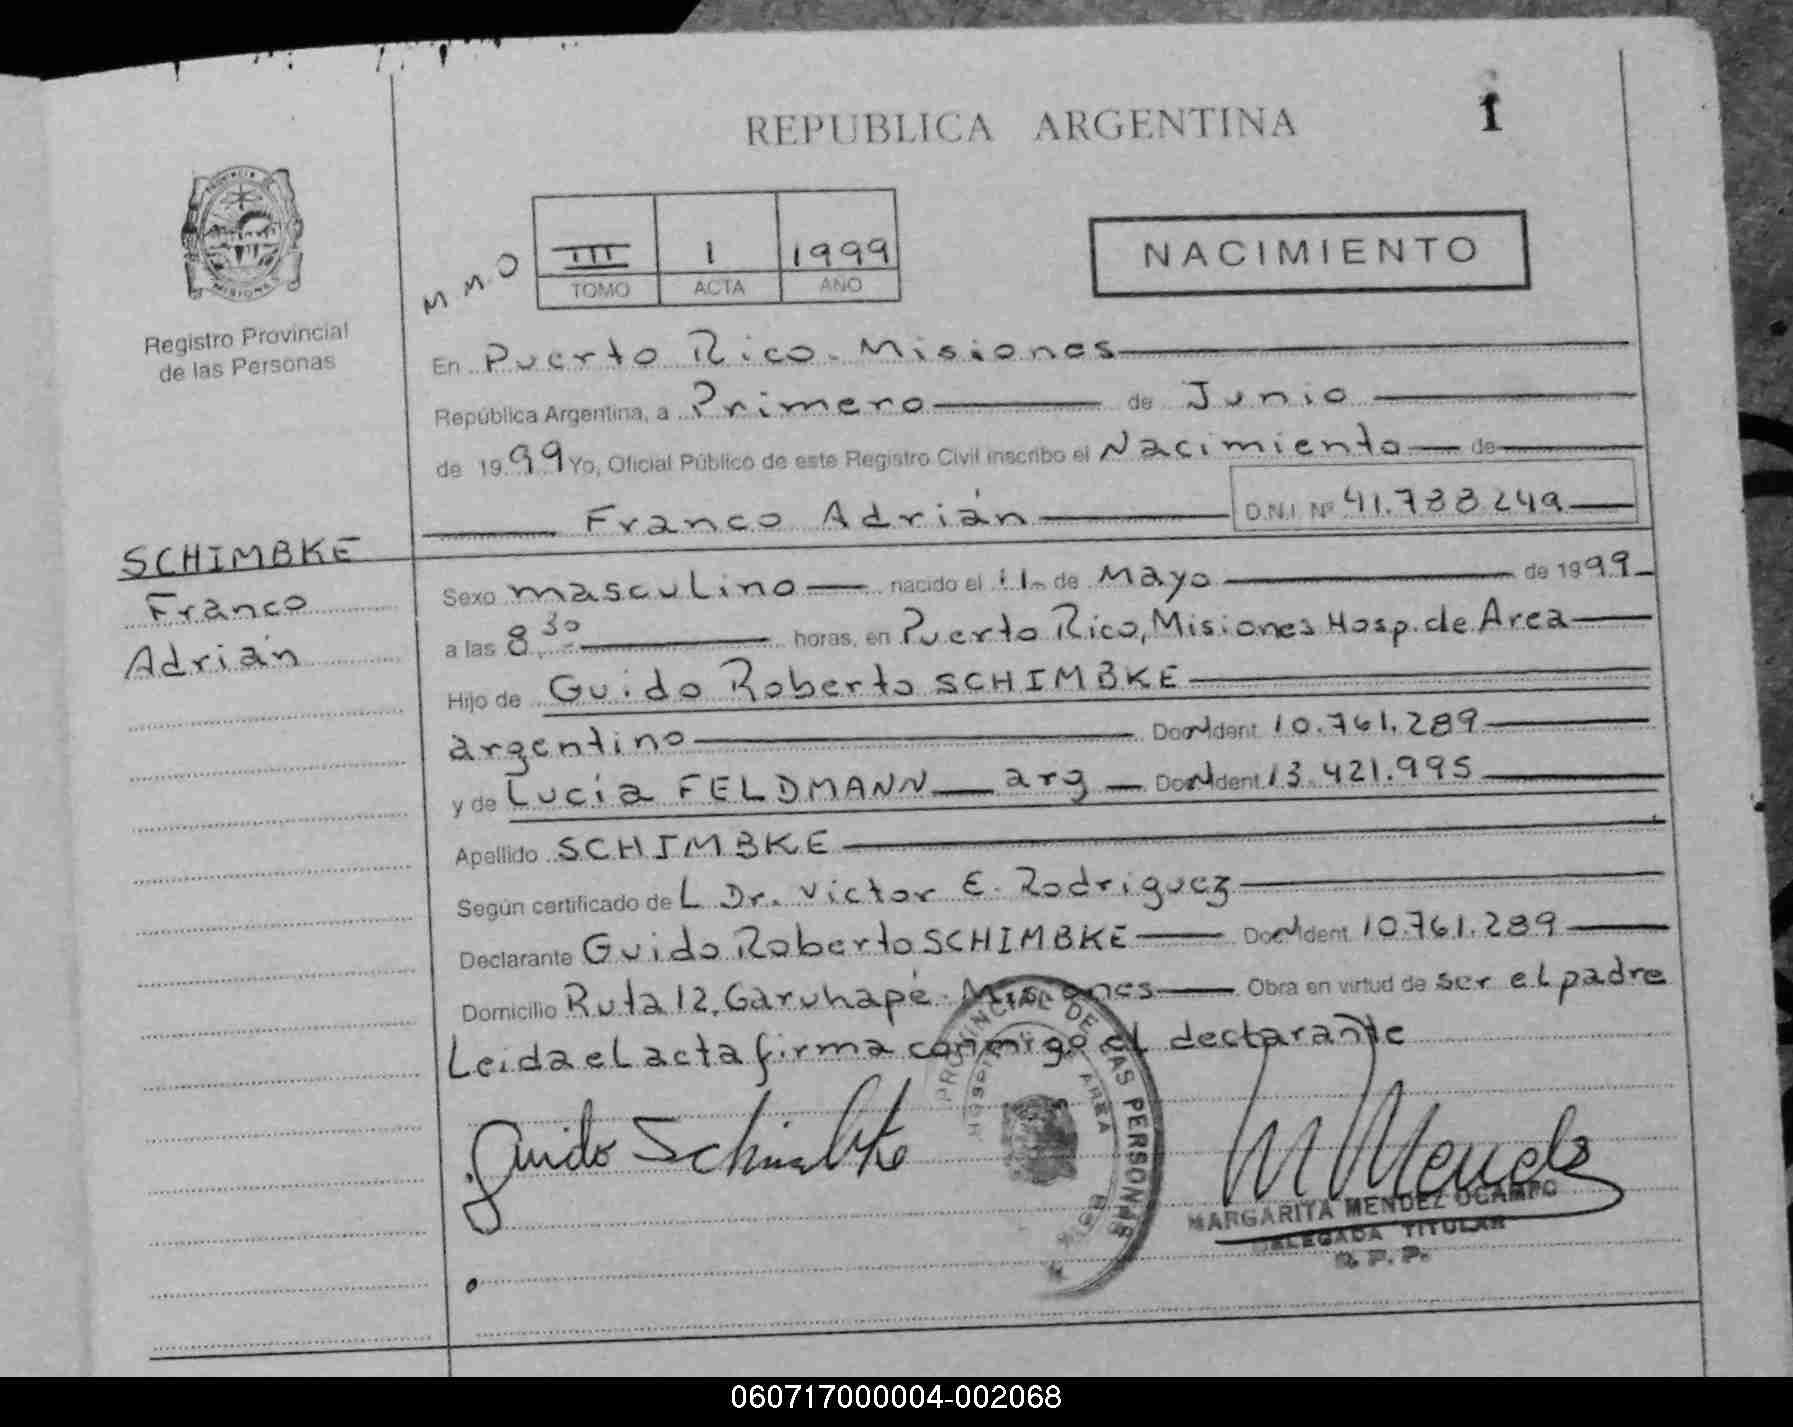 REPUBLICA ARGENTINA
1
PROVINCIA DE
MISIONES
Registro Provincial
de las Personas
M.M.O
III 1 1999
TOMO ACTA AÑO
NACIMIENTO
En Puerto Rico - Misiones
República Argentina, a Primero de Junio
de 1999 Yo, Oficial Público de este Registro Civil inscribo el Nacimiento de
Franco Adrián D.N.I. Nº 41.788.249
SCHIMBKE
Franco
Adrián
Sexo masculino nacido el 11 de Mayo de 1999
a las 8,30 horas, en Puerto Rico, Misiones Hosp. de Area
Hijo de Guido Roberto SCHIMBKE
argentino Doc. Ident. 10.761.289
y de Lucía FELDMANN arg Doc. Ident. 13.421.995
Apellido SCHIMBKE
Según certificado de L Dr. Victor E. Rodriguez
Declarante Guido Roberto SCHIMBKE Doc. Ident. 10.761.289
Domicilio Ruta 12, Garuhapé - Misiones Obra en virtud de ser el padre
Leida el acta firma conmigo el declarante
PROVINCIAL DE LAS PERSONAS
AREA
Guido Schimbke
M Mendez
MARGARITA MENDEZ OCAMPO
DELEGADA TITULAR
R. P. P.
060717000004-002068